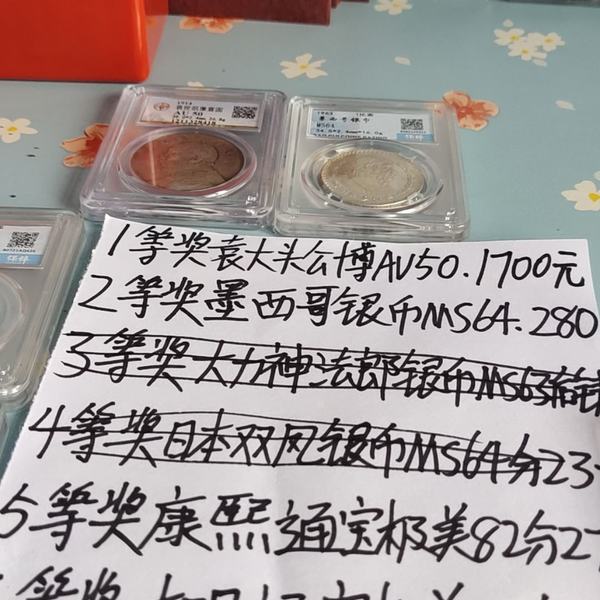 1914
AU 50
1963
墨西哥银币
MS64
1等奖袁大头公博AU50.1700元
2等奖墨西哥银币MS64.280
3等奖大力神法郎银币MS63
4等奖日本双凤银币MS64分23
5等奖康熙通宝极美82分2